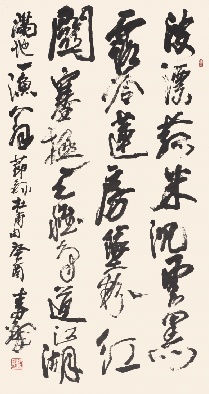 波漂菰米沉雲黑
露冷蓮房墜粉紅
關塞極天唯鳥道江湖
滿地一漁翁 節錄杜甫句 癸酉